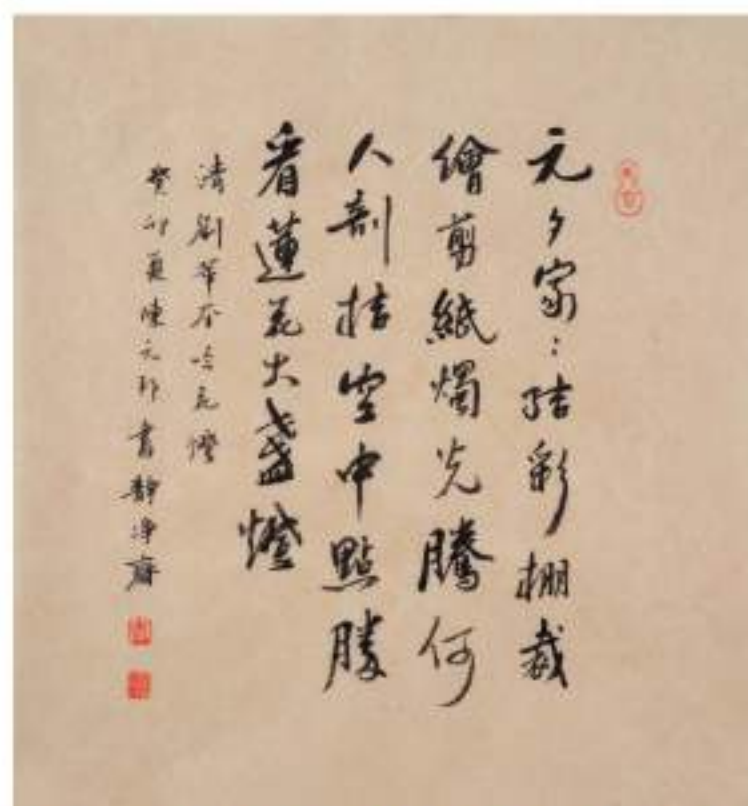 元夕家〻结彩棚裁
繪剪紙燭光騰何
人剖桔空中點勝
看蓮花大盞燈
清劉華 花燈
癸卯夏陳元邦書靜淨齋